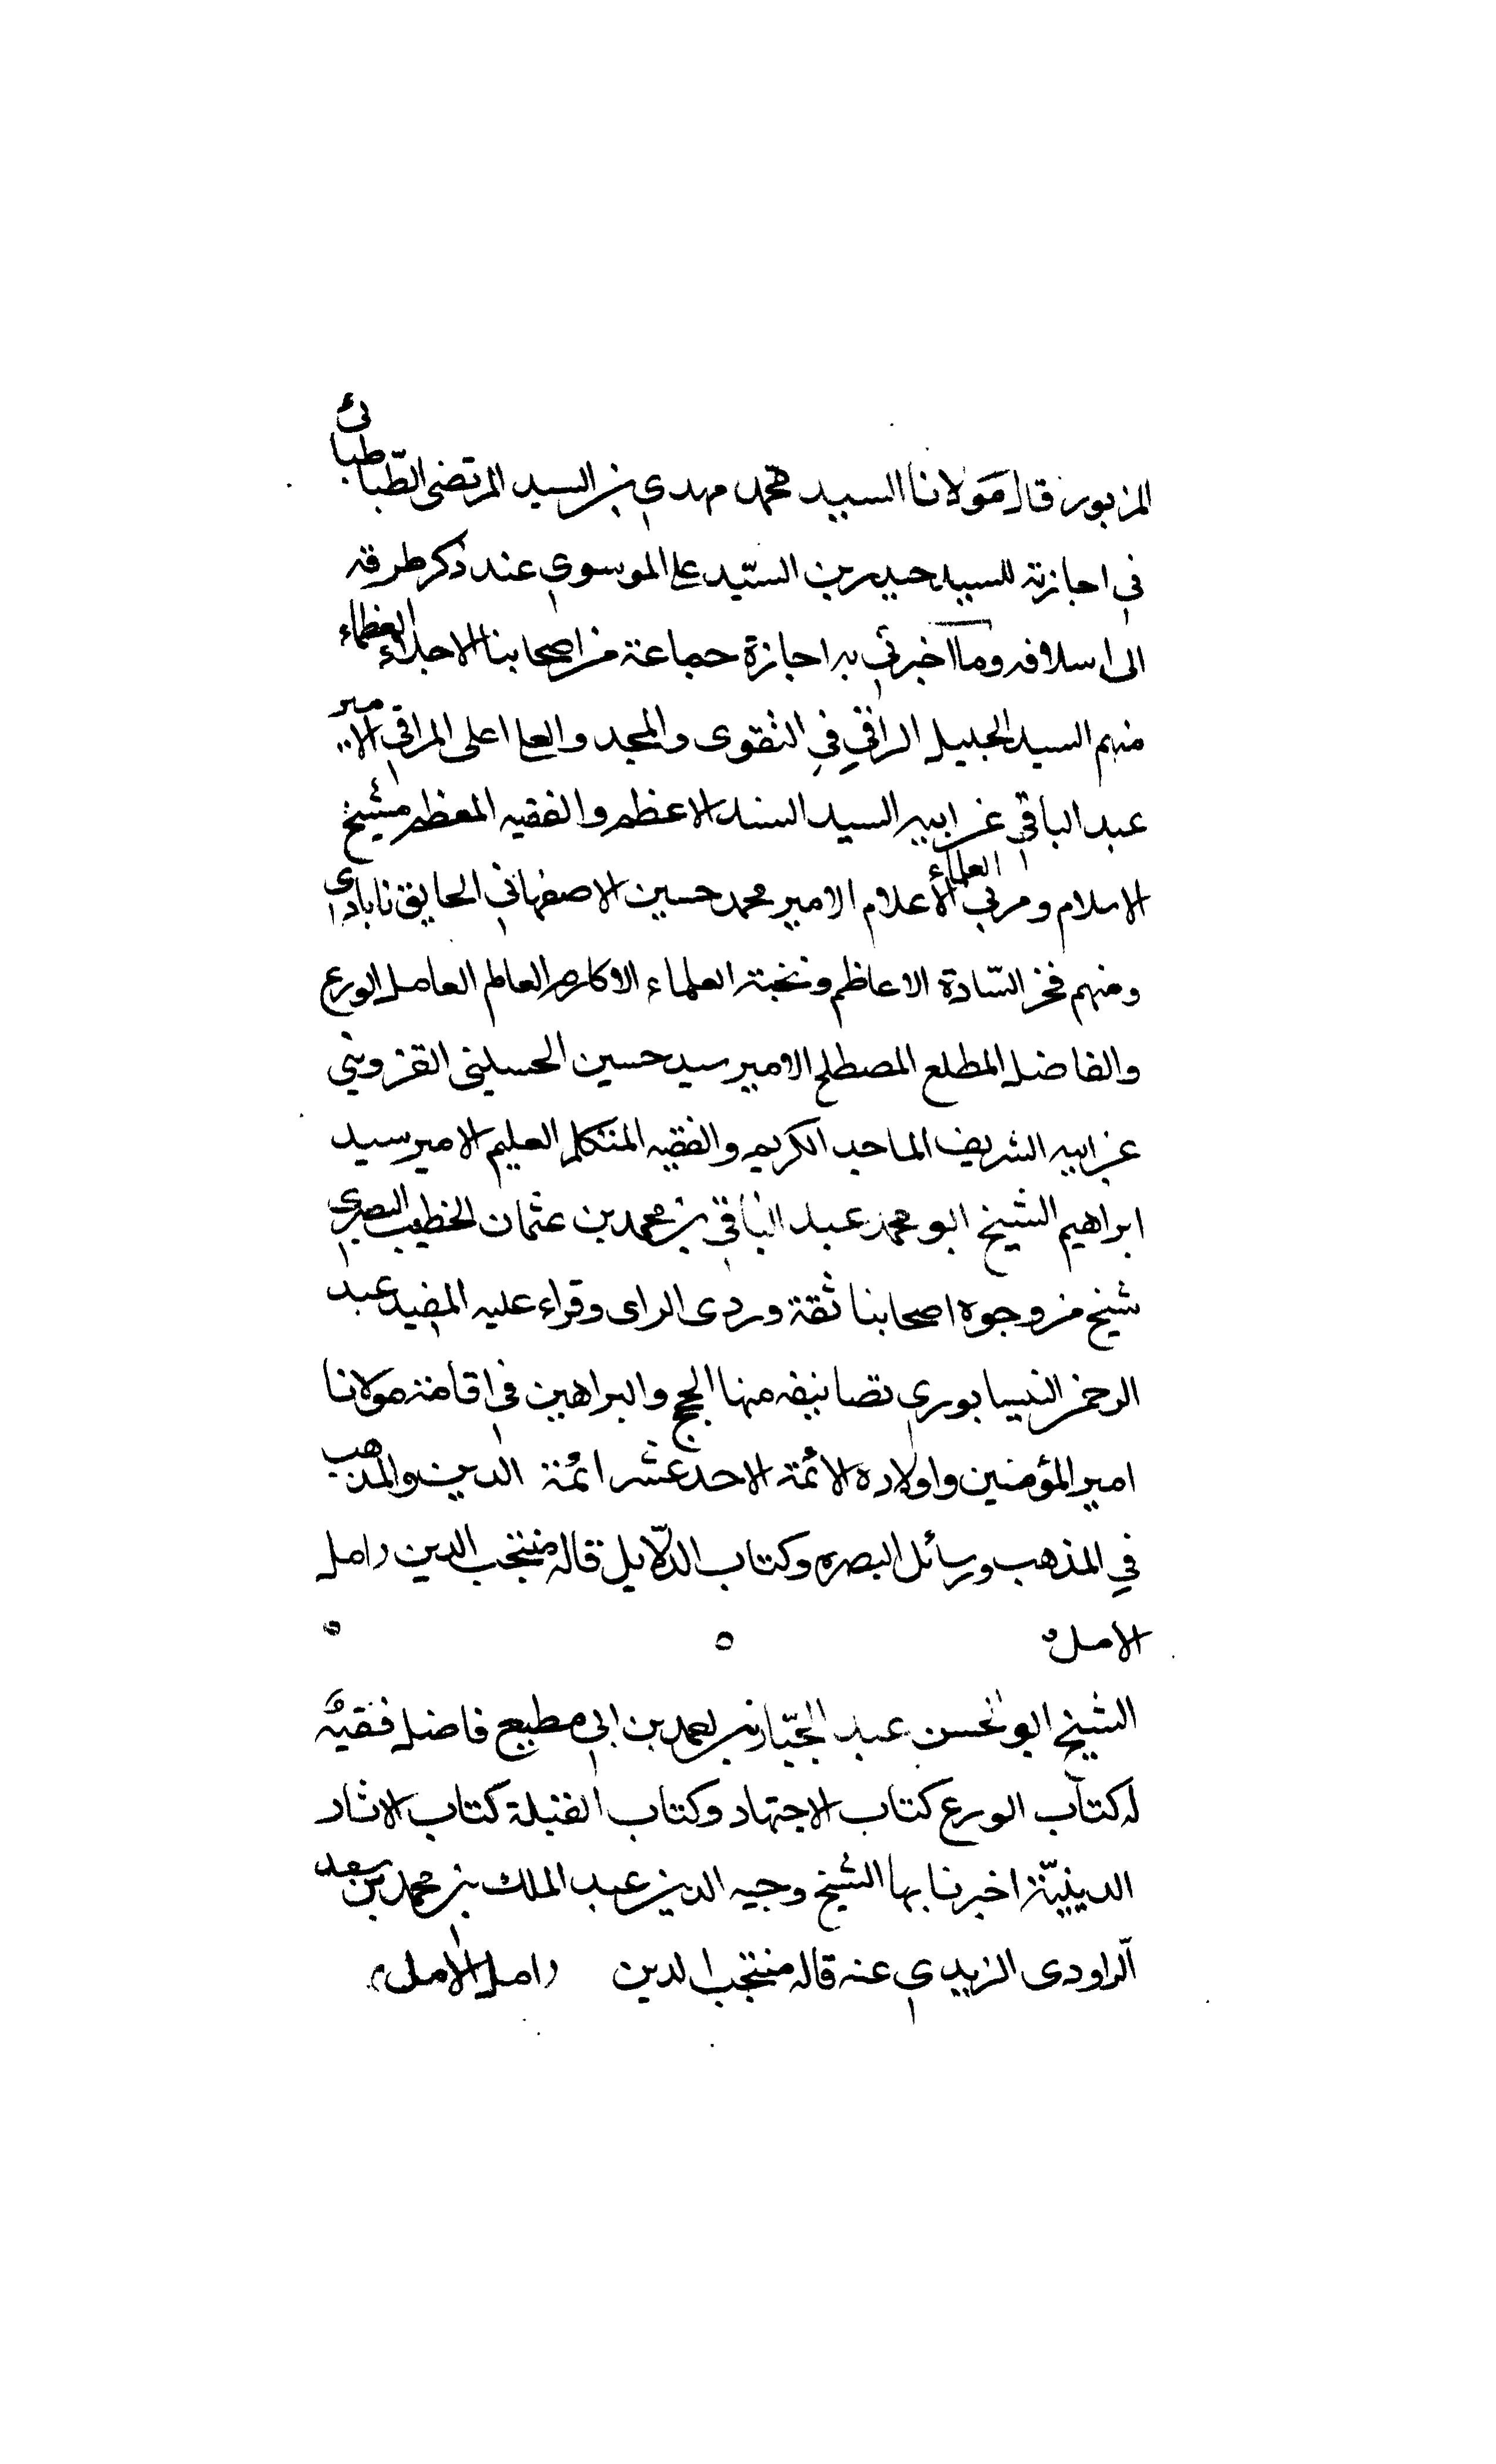 المزبور قال مولانا السيد محمد مهدي بن السيد المرتضى الطّباطبائ
في اجازته للسيد حيدر بن السيّد على الموسوي عند ذكر طرقه
الى اسلافه وما اخبرني به اجازة جماعة من اصحابنا الاجلاء العظماء
منهم السيد الجليل الراقي في التقوى والمجد والعلا اعلى المراقي الامير
عبد الباقي عن ابيه السيد السند الاعظم والفقيه المعظم شيخ
الاسلام ومربي العلماء الأعلام الامير محمد حسين الاصفهاني
ومنهم فخر السّادة الاعاظم ونخبة العلماء الاكارم العالم العامل الورع
والفاضل المطلع المصطلح الامير سيد حسين الحسيني القزويني
عن ابيه الشريف الماجد الكريم والفقيه المتكلم العليم الامير سيد
ابراهيم الشيخ ابو محمد عبد الباقي بن محمد بن عثمان الخطيب البصري
شيخ من وجوه اصحابنا ثقة وردى الراى وقراء عليه المفيد عبد
الرحمن النيسابوري تصانيفه منها الحجج والبراهين في اقامة مولانا
امير المؤمنين واولاده الائمة الاحد عشر ائمة الدين والمذهب
في المذهب ورسائل البصره وكتاب الدلّايل قاله منتجب الدين رامل
الامل
الشيخ ابو الحسن عبد الجبّار بن احمد بن ابي مطيع فاضل فقيه
له كتاب الورع كتاب الاجتهاد وكتاب القبلة كتاب الاثار
الدينيّة اخبرنا بها الشيخ وجيه الدين عبد الملك بن محمد بن سعد
الراودى الزيدي عنه قاله منتجب الدين رامل الامل